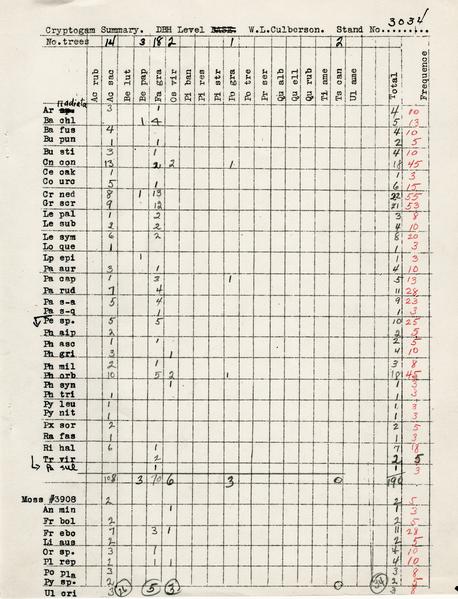 3034
Cryptogam Summary. DBH Level BASE. W.L.Culberson. Stand No.....
No.trees 14 3 18 2 1 2
Ac rub Ac sac Be lut Be pap Fa gra Os vir Pi ban Pi res Pi str Po gra Po tre Pr ser Qu alb Qu ell Qu rub Ti ame Ts can Ul ame Total Frequency
Ar 3 1 4 10
Ba chl 1 4 5 13
Ba fus 4 4 10
Bu pun 1 1 2 5
Bu sti 3 1 4 10
Cn con 13 2 2 1 18 45
Ce oak 1 1 3
Co urc 5 1 6 15
Cr ned 8 1 13 22 55
Gr scr 9 12 21 53
Le pal 1 2 3 8
Le sub 2 2 4 10
Le sym 6 2 8 20
Lo que 1 1 3
Lp epi 1 1 3
Pa aur 3 1 4 10
Pa cap 1 3 1 5 13
Pa rud 7 4 11 28
Pa s-a 5 4 9 23
Pa s-q 1 1 3
Pe sp. 5 5 10 25
Ph aip 2 2 5
Ph asc 1 1 2 5
Ph gri 3 1 4 10
Ph mil 2 1 3 8
Ph orb 10 5 2 1 18 45
Ph syn 1 1 3
Ph tri 1 1 3
Py leu 1 1 3
Py nit 1 1 3
Px sor 2 2 5
Ra fas 1 1 3
Ri hal 6 1 7 18
Tr vir 2 2 5
1 1 3
108 3 70 6 3 0 190
Moss #3908 2 2 5
An min 1 1 3
Fr bol 2 2 5
Fr ebo 7 3 1 11 28
Li aus 2 2 5
Or sp. 3 1 4 10
Pl rep 2 1 1 4 10
Po pla 3 3 8
Py sp. 2 0 2 5
Ul ori 3 26 5 3 34 3 8